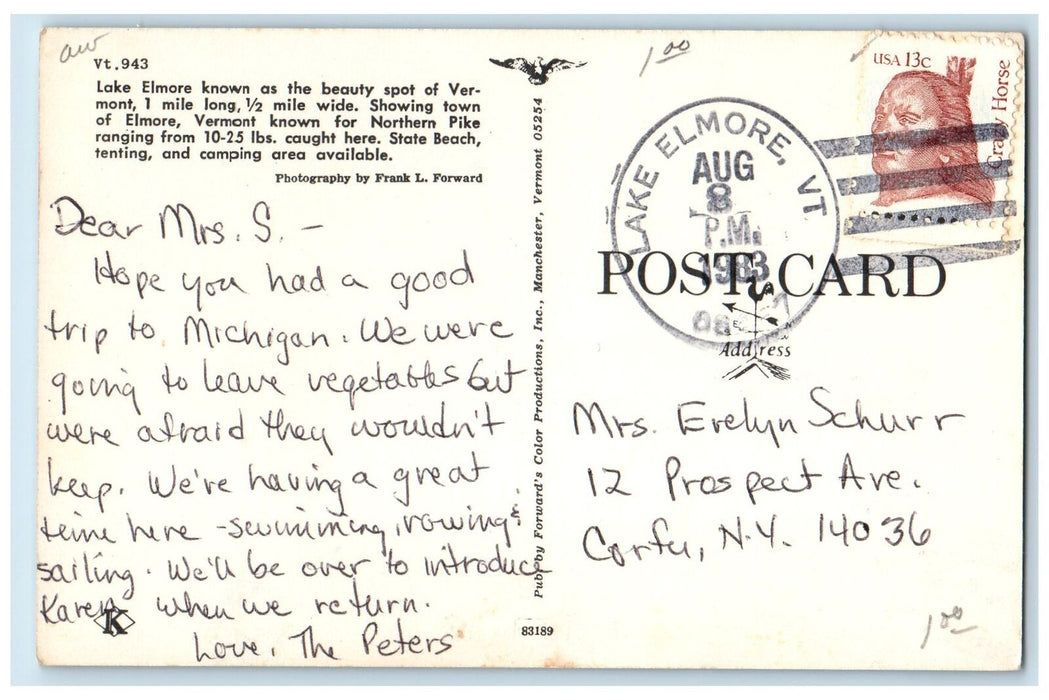 aw
Vt.943
Lake Elmore known as the beauty spot of Ver-
mont, 1 mile long, ½ mile wide. Showing town
of Elmore, Vermont known for Northern Pike
ranging from 10-25 lbs. caught here. State Beach,
tenting, and camping area available.
Photography by Frank L. Forward
Dear Mrs. S. -
Hope you had a good
trip to Michigan. We were
going to leave vegetables but
were afraid they wouldn't
keep. We're having a great
time here - swimming, rowing &
sailing. We'll be over to introduce
Karen when we return.
Love, The Peters
K
Pub. by Forward's Color Productions, Inc., Manchester, Vermont 05254
83189
1.00
LAKE ELMORE, VT
AUG
8
P.M.
1983
USA 13c
Crazy Horse
POST CARD
Address
Mrs. Evelyn Schurr
12 Prospect Ave.
Corfu, N.Y. 14036
1.00